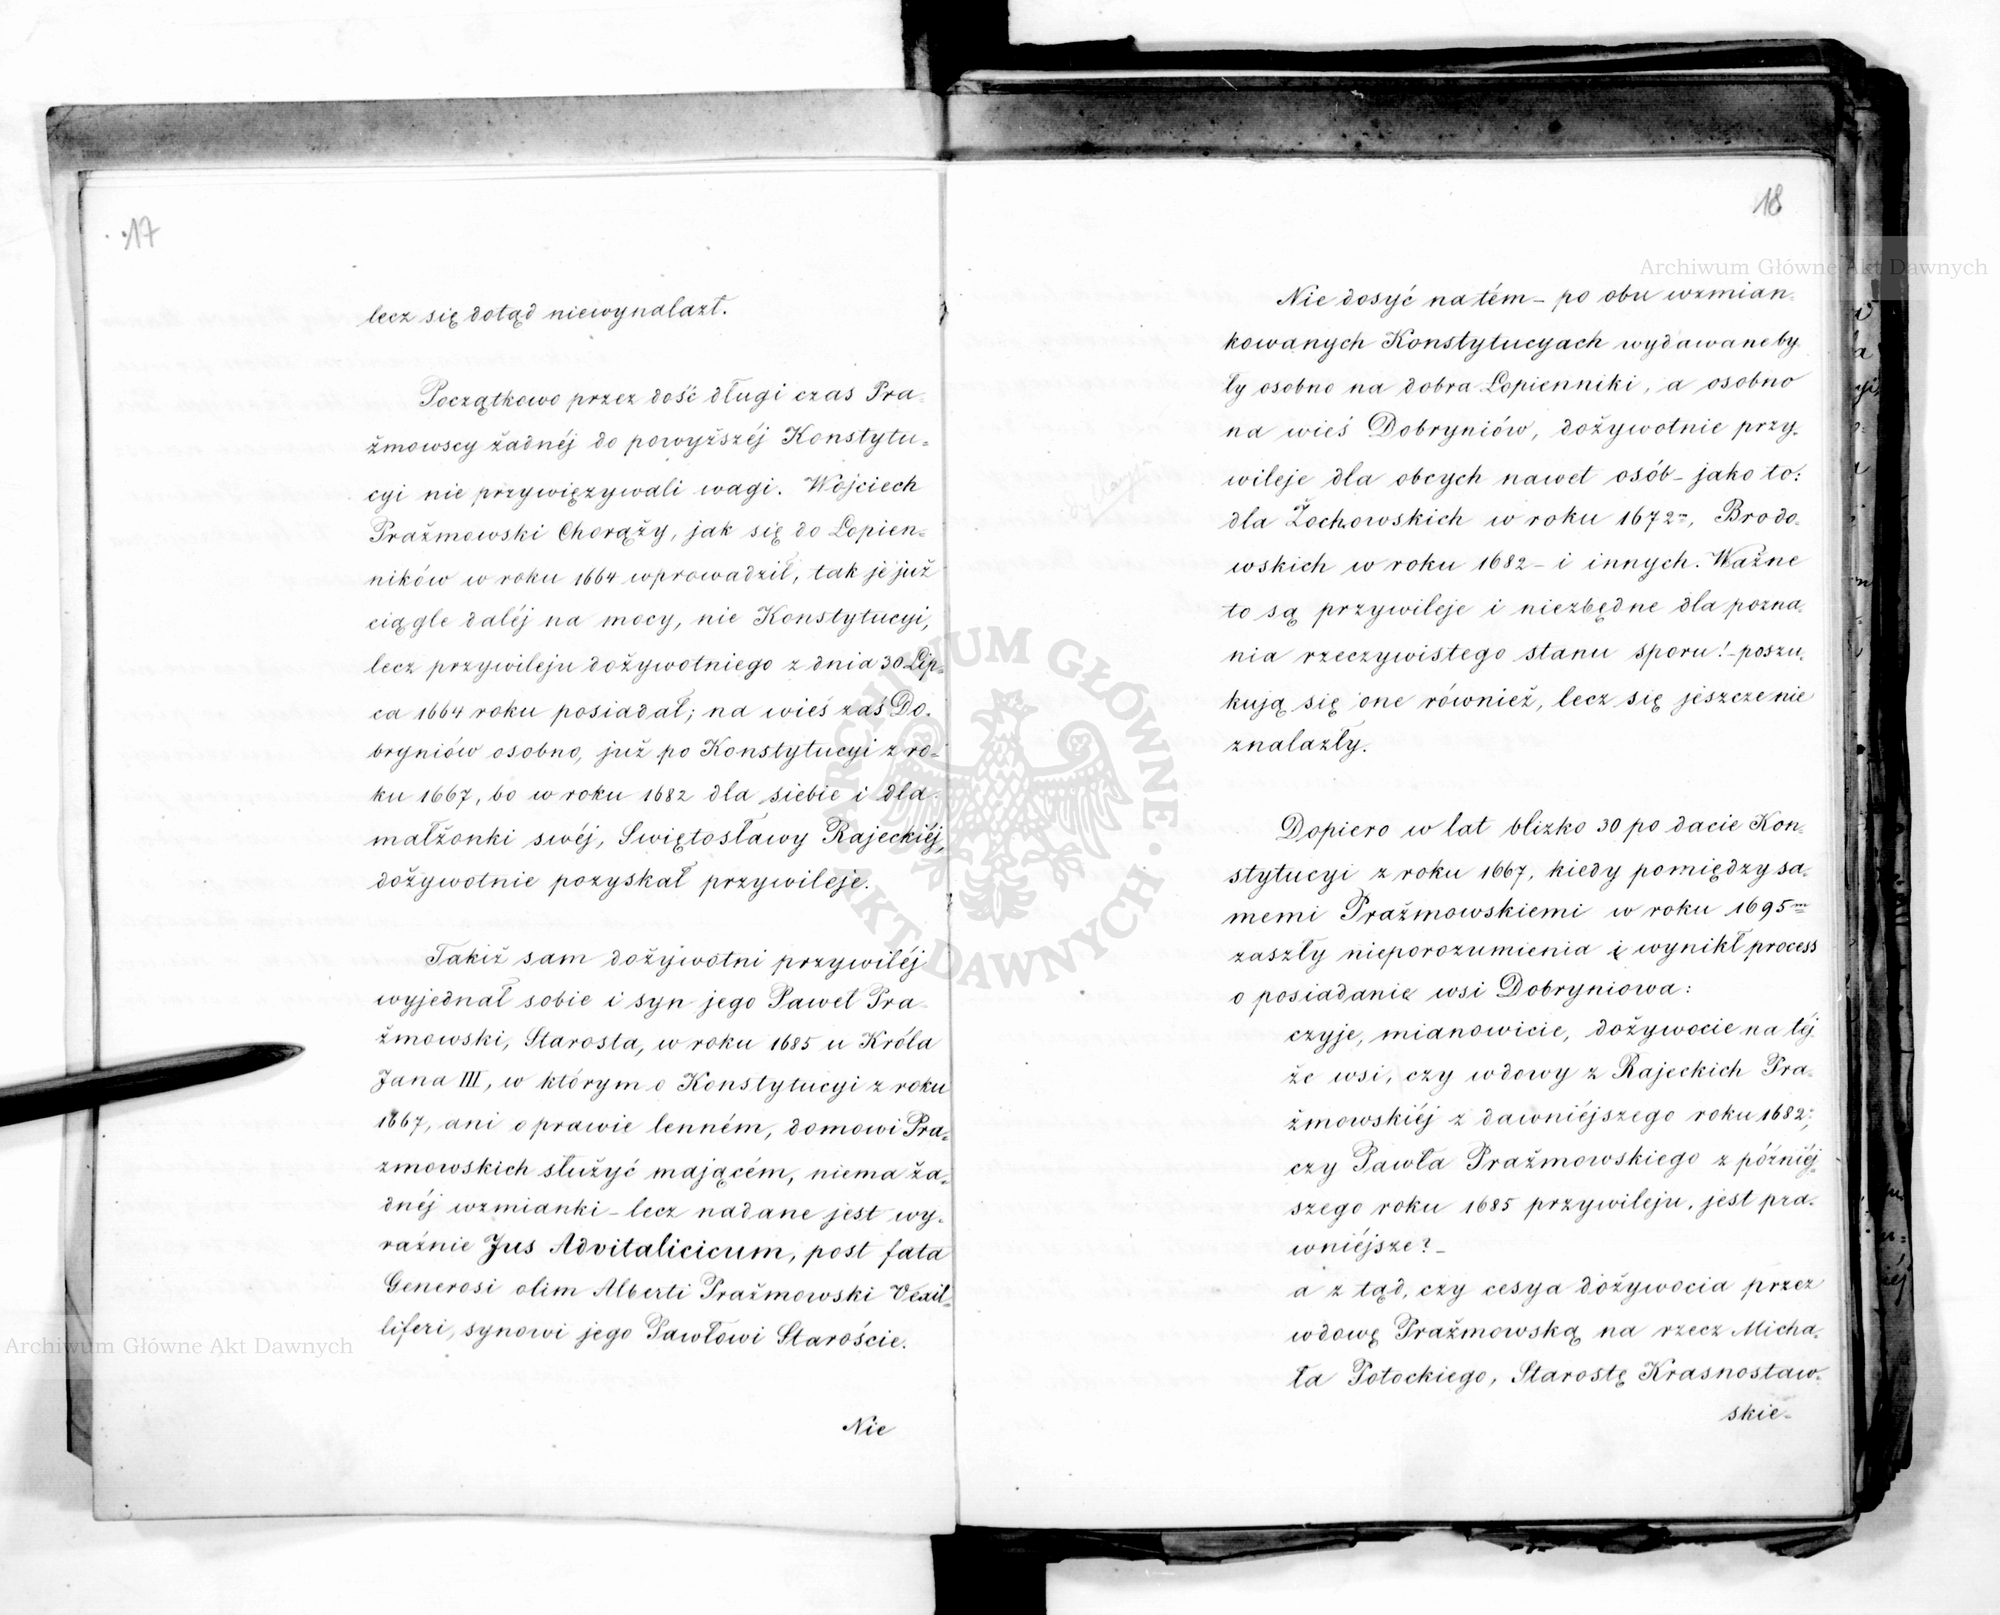 17
lecz się dotąd niewynalazł.
Początkowo przez dość długi czas Pra-
żmowscy żadnéj do powyższéj Konstytu-
cyi nie przywięzywali wagi. Wojciech
Prażmowski Chorąży, jak się do Łopien-
ników w roku 1664 wprowadził, tak je już
ciągle daléj na mocy, nie Konstytucyi,
lecz przywileju dożywotniego z dnia 30 Lip-
ca 1664 roku posiadał; na wieś zaś Do-
bryniów osobno, już po Konstytucyi z ro-
ku 1667, bo w roku 1682 dla siebie i dla
małżonki swéj, Swiętosławy Rajeckiéj,
dożywotnie pozyskał przywileje.
Takiż sam dożywotni przywiléj
wyjednał sobie i syn jego Paweł Pra-
żmowski, Starosta, w roku 1685 u Króla
Jana III, w którym o Konstytucyi z roku
1667, ani o prawie lenném, domowi Pra-
zmowskich służyć mającém, niema ża-
dnéj wzmianki – lecz nadane jest wy-
raźnie Jus Advitalicicum, post fata
Generosi olim Alberti Prażmowski Vexil-
liferi, synowi jego Pawłowi Staroście.
Nie
18
Nie dosyć na tém – po obu wzmian-
kowanych Konstytucyach wydawane by-
ły osobno na dobra Łopienniki, a osobno
na wieś Dobryniów, dożywotnie przy-
wileje dla obcych nawet osób – jako to:
dla Żochowskich w roku 1672m, Brodo-
wskich w roku 1682 – i innych. Ważne
to są przywileje i niezbędne dla pozna-
nia rzeczywistego stanu sporu! – poszu-
kują się one również, lecz się jeszcze nie
znalazły.
Dopiero w lat blizko 30 po dacie Kon-
stytucyi z roku 1667, kiedy pomiędzy sa-
memi Prażmowskiemi w roku 1695m
zaszły nieporozumienia i wynikł process
o posiadanie wsi Dobryniowa:
czyje, mianowicie, dożywocie na téj-
że wsi, czy wdowy z Rajeckich Pra-
żmowskiéj z dawniéjszego roku 1682,
czy Pawła Prażmowskiego z późniéj-
szego roku 1685 przywileju, jest pra-
wniéjsze? –
a z tąd, czy cesya dożywocia przez
wdowę Prażmowską na rzecz Micha-
ła Potockiego, Starostę Krasnostaw-
skie-
Archiwum Główne Akt Dawnych
Archiwum Główne Akt Dawnych
ARCHIWUM GŁÓWNE AKT DAWNYCH